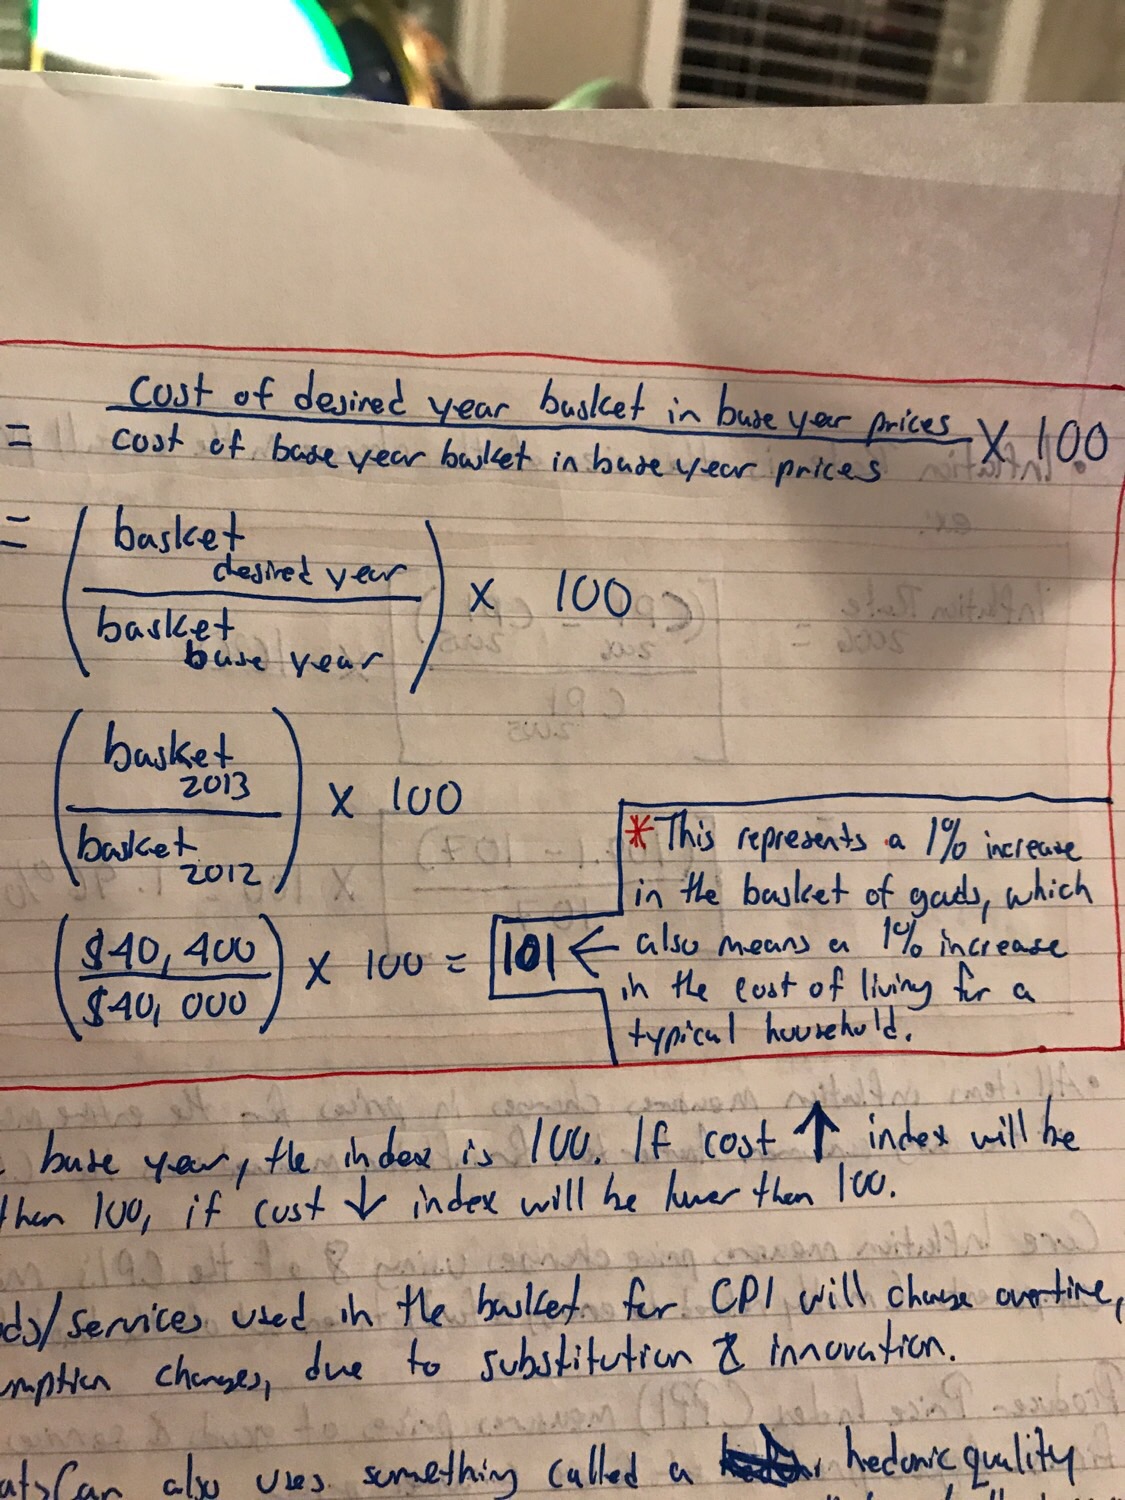 = cost of desired year basket in base year prices
cost of base year basket in base year prices × 100
= (basket desired year
basket base year) × 100
(basket 2013
basket 2012) × 100
($40,400
$40,000) × 100 = 101 ←
* This represents a 1% increase
in the basket of goods, which
also means a 1% increase
in the cost of living for a
typical household.
base year, the index is 100. If cost ↑ index will be
than 100, if cost ↓ index will be lower than 100.
ds/services used in the basket for CPI will change overtime,
umption changes, due to substitution & innovation.
atsCan also uses something called a hedonic quality